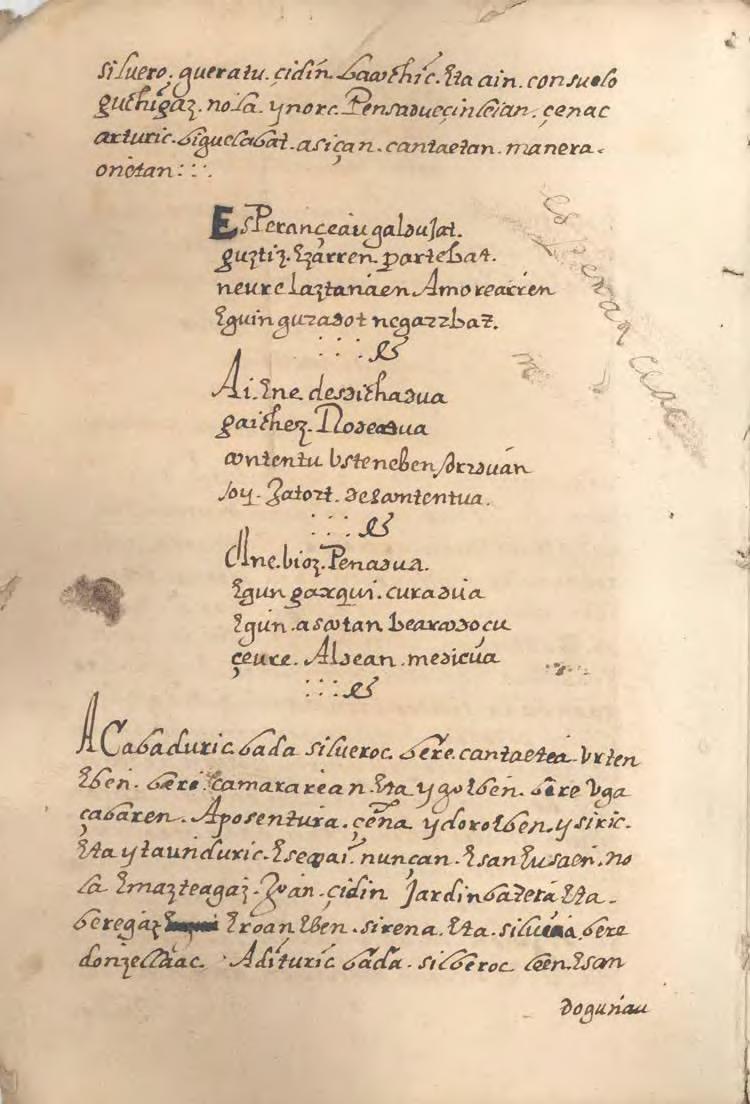 siluero. gueratu. çidin. bacochic. Eta ain. consuelo
guchigaz. nola. ynorc. Pensadueçinleian. çenac
arturic. biguelabat. asiçan. cantaetan. manera.
onetan: : .
EsPerançeau galdu Jat.
guztiz. Ezarren. partebat.
neure laztanaen Amorearren
Eguin guradot negarrbat.
Ai. Ene. desdichadua
gaichez. Rodeadua
contentu Vsteneben orduan
Joy. Jatort. descontentua.
Ene. bioz. Penadua.
Egun gaxqui. curadua
Egun. ascotan bearcodoçu
çeure. Aldean. medicua
ACabaduric. bada silueroc. bere. cantaetea. Vrten
Eben. bere. camararean. Eta ygo Eben. bere Vga
çabaren. Aposentura. çena ydoro Eben. ysiric.
Eta ytaunduric. Esegai. nunçan. Esan Eusaen. no
la Emazteagaz. Joan. çidin Jardin batera Eta.
beregaz Eroan Eben. sirena. Eta. siluia. bere
donzellaac. Adituric bada. silberoc been. Esan
dogunau
es peran ceac